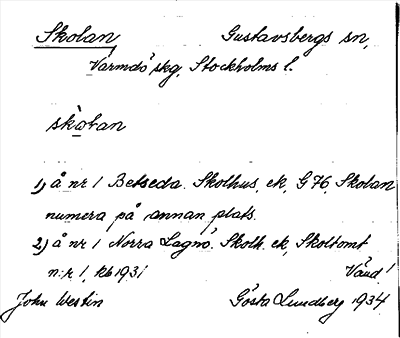 Skolan Gustavsbergs sn,
Värmdö skg, Stockholms l.
skolan
1) å nr 1 Betseda. Skolhus, ek, G76, Skolan
numera på annan plats.
2) å nr 1 Norra Lagnö. Skolh. ek, Skoltomt
n:r 1, kb 1931 Vänd!
John Westin Gösta Lundberg 1934